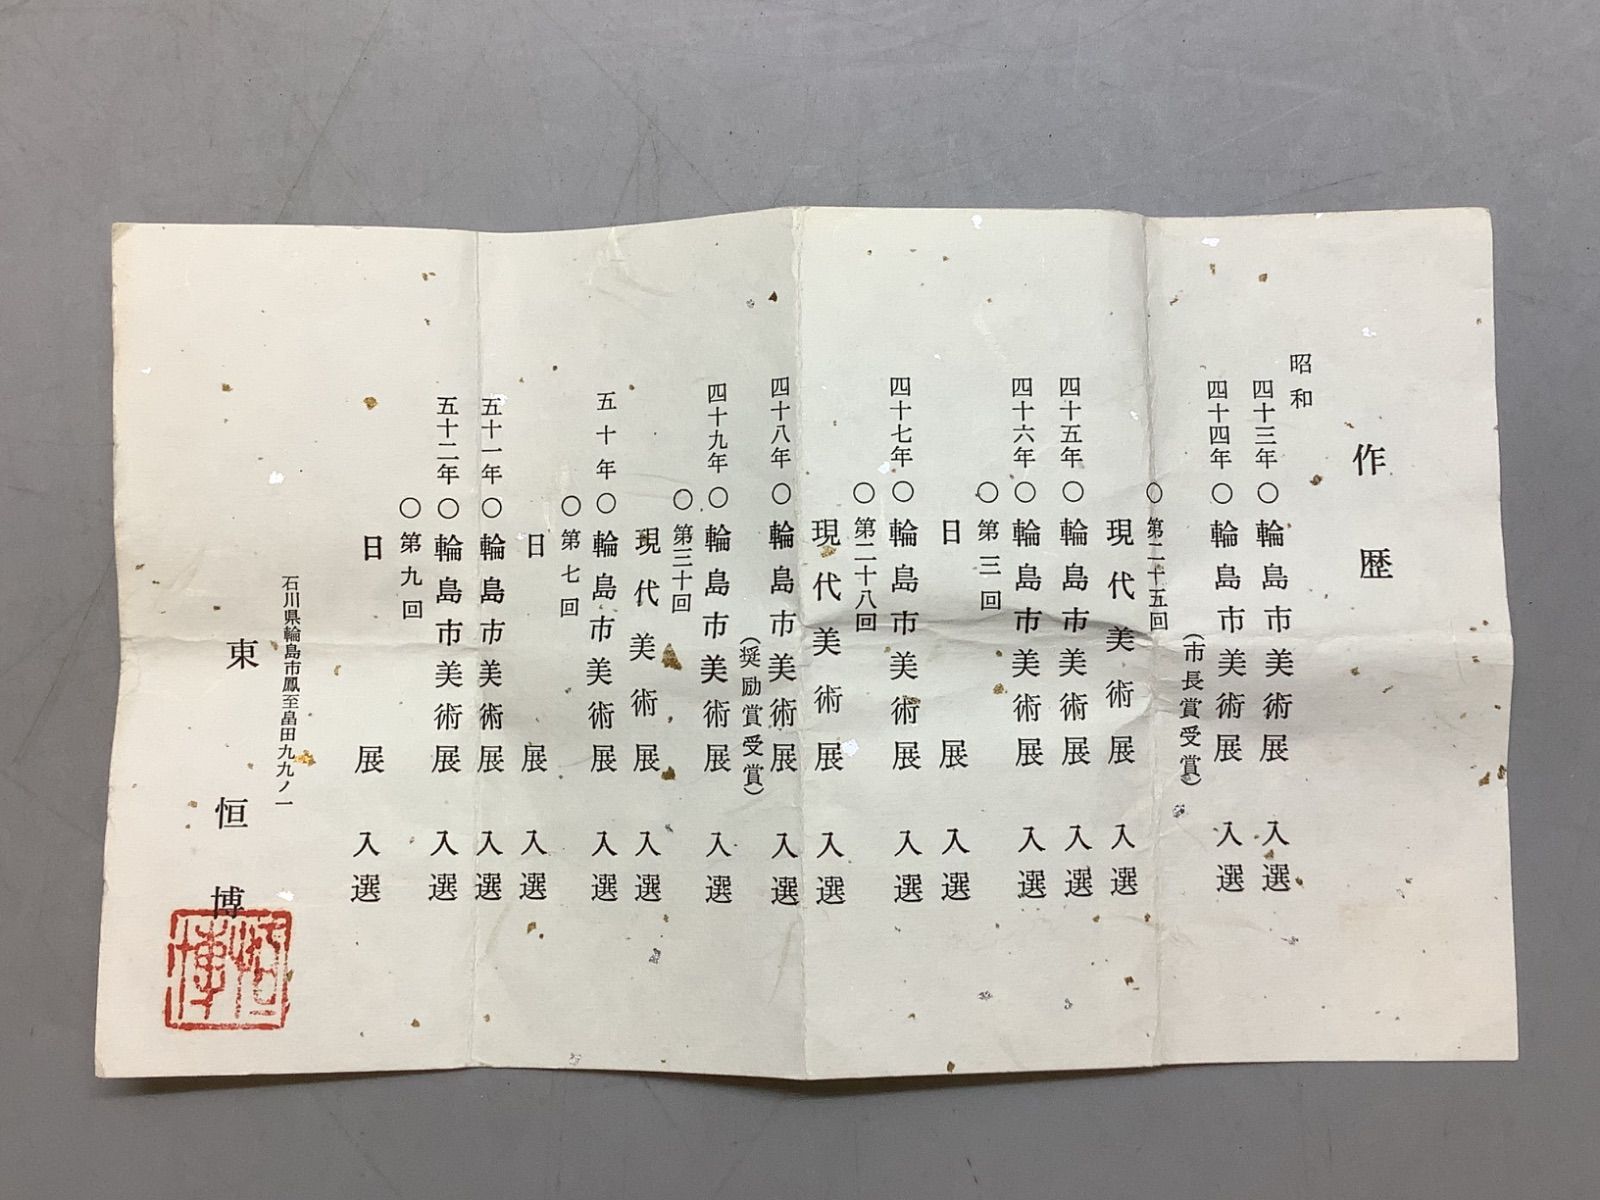 作歴
昭和
四十三年〇輪島市美術展 入選
四十四年〇輪島市美術展 入選
(市長賞受賞)
〇第二十五回
現代美術展 入選
四十五年〇輪島市美術展 入選
四十六年〇輪島市美術展 入選
〇第三回
日展 入選
四十七年〇輪島市美術展 入選
〇第二十八回
現代美術展 入選
四十八年〇輪島市美術展 入選
(奨励賞受賞)
四十九年〇輪島市美術展 入選
〇第三十回
現代美術展 入選
五十年〇輪島市美術展 入選
〇第七回
日展 入選
五十一年〇輪島市美術展 入選
五十二年〇輪島市美術展 入選
〇第九回
日展 入選
石川県輪島市鳳至畠田九九ノ一
東恒博
恒博